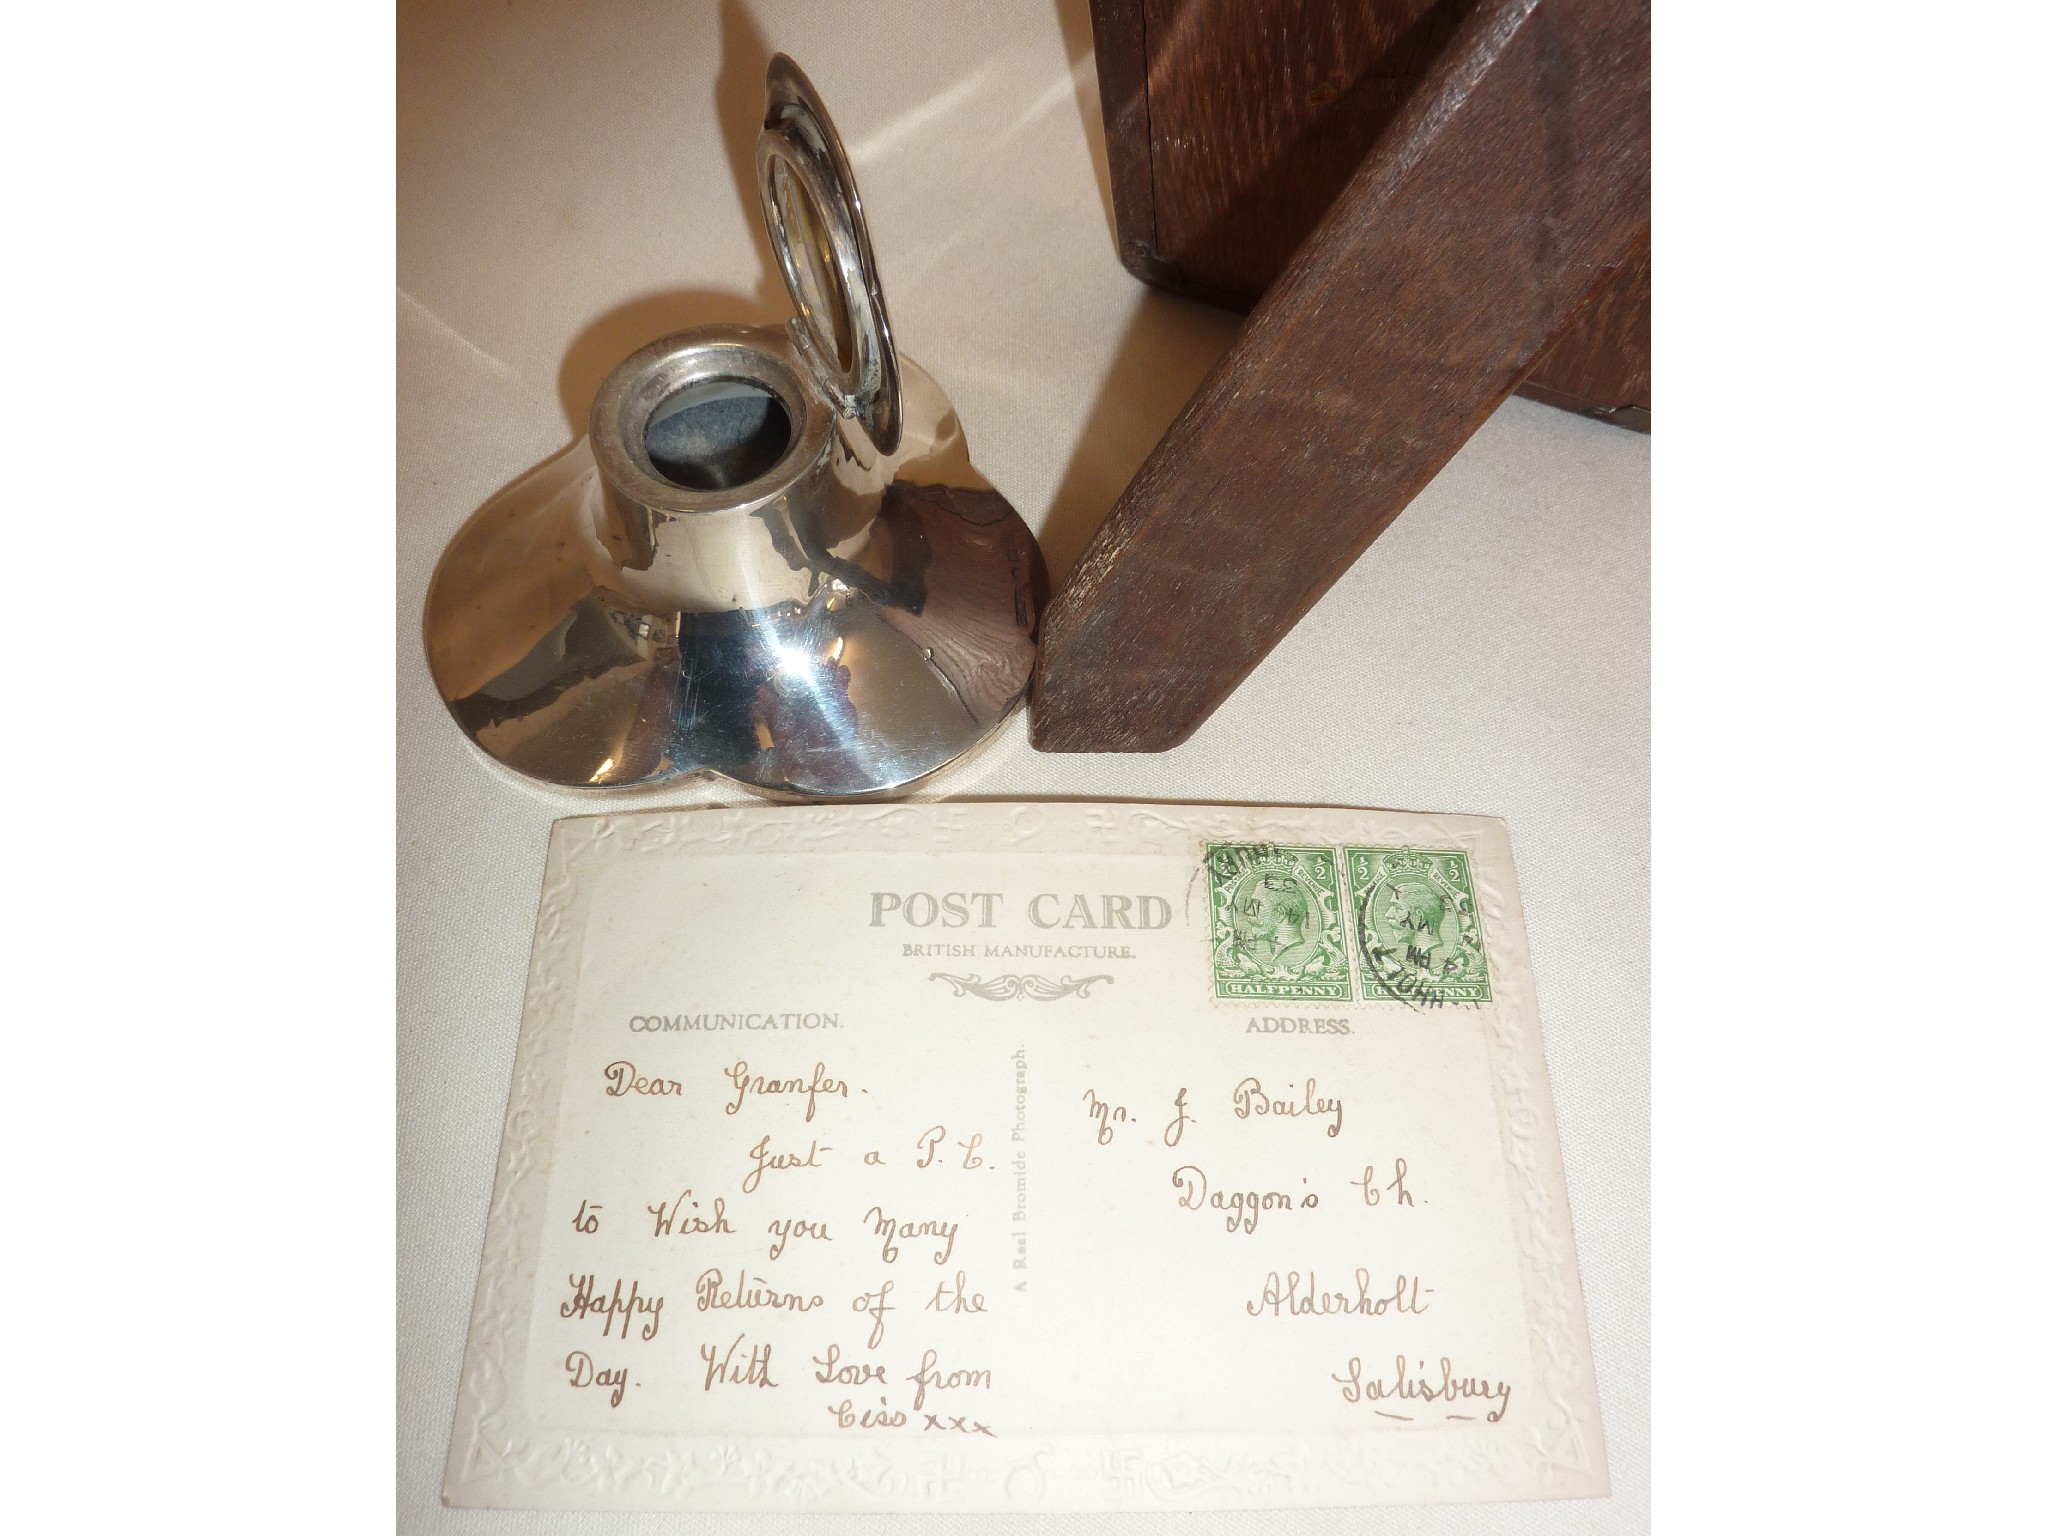 POST CARD
BRITISH MANUFACTURE.
COMMUNICATION.
ADDRESS.
A Real Bromide Photograph.
HALFPENNY
1/2
1/2
4 PM
14 MY
33
HALFPENNY
1/2
1/2
4 PM
MY
Dear Granfer.
Just a P.C.
to Wish you Many
Happy Returns of the
Day. With Love from
Ciss xxx
Mr. J. Bailey
Daggon's Ch.
Alderholt
Salisbury